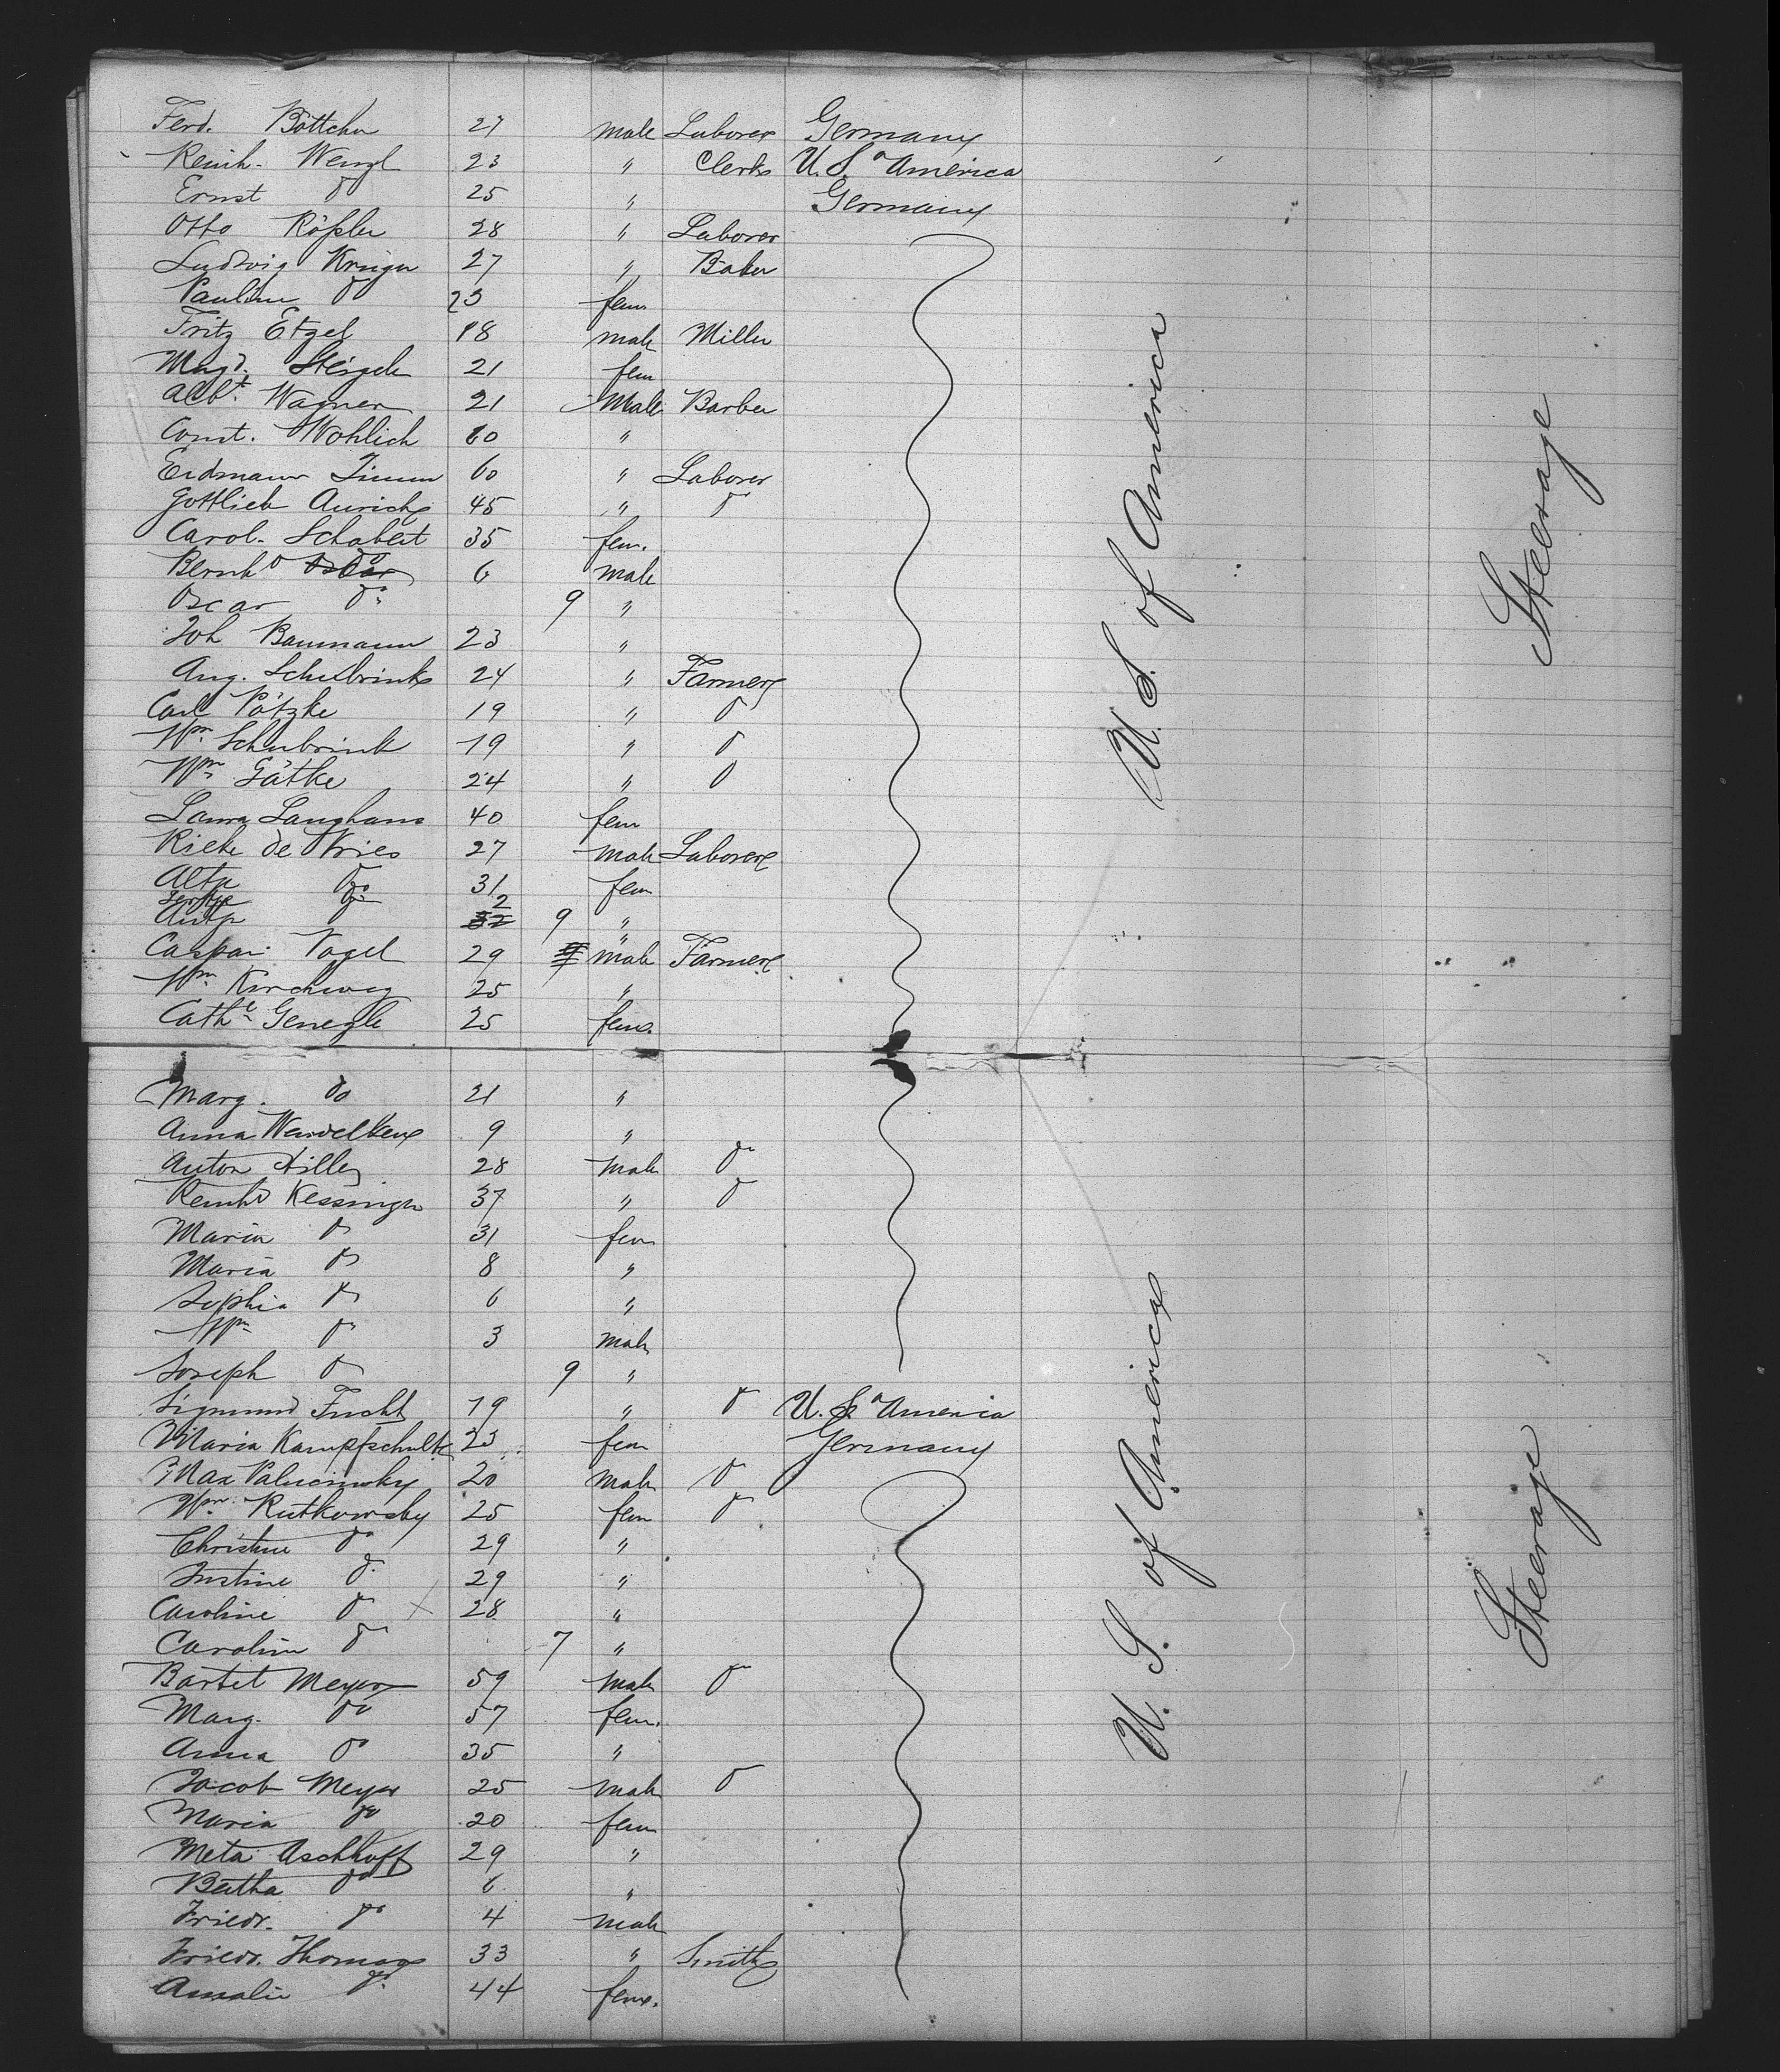 Ferd. Böttcher 27 male Laborer Germany
Reinh. Wenzl 23 " Clerk U. S. o America
Ernst do 25 " Germany
Otto Rößler 28 " Laborer
Ludwig Kruger 27 " Baker
Pauline do 23 fem
Fritz Etzel 18 male Miller
Magd. 21 fem
Albt. Wagner 21 Male Barber
Const. Wohlich 60 "
Erdmann Timm 60 " Laborer
Gottlieb Aurich 45 " do
Carol. Schobert 35 fem.
Bernhd do 6 male
Oscar do 9 "
Joh Baumann 23 "
Aug. Schubrink 24 " Farmer
Carl Pötzke 19 " do
Wm. Schubrink 19 " do
Wm. Gätke 24 " do
Laura Langhans 40 fem
Rieke de Vries 27 male Laborer
Altje do 31 fem
do 2
Antje do 9 "
Caspar Vogel 29 male Farmer
Wm. Kirchweg 25 "
Cath. Genegle 25 fem.
U. S. of America
Steerage
Marg. do 21 "
Anna Wendelken 9 "
Anton Hiller 28 male do
Reinhd Kessinger 37 " do
Maria do 31 fem
Maria do 8 "
Sophia do 6 "
Wm do 3 male
Joseph do 9 "
Sigmund Fucht 19 " do U. S. o America
Maria Kampfschulte 23 fem Germany
Max 20 male do
Wm. Rutkowsky 25 fem do
Christine do 29 "
Justine do 29 "
Caroline do 28 "
Caroline do 7 "
Bartel Meyer 59 male do
Marg. do 57 fem.
Anna do 35 "
Jacob Meyer 25 male do
Maria do 20 fem
Meta Aschhoff 29 "
Bertha do 6 "
Friedr. do 4 male
Friedr. Thomas 33 " Smith
Amalie do 44 fem.
U. S. of America
Steerage